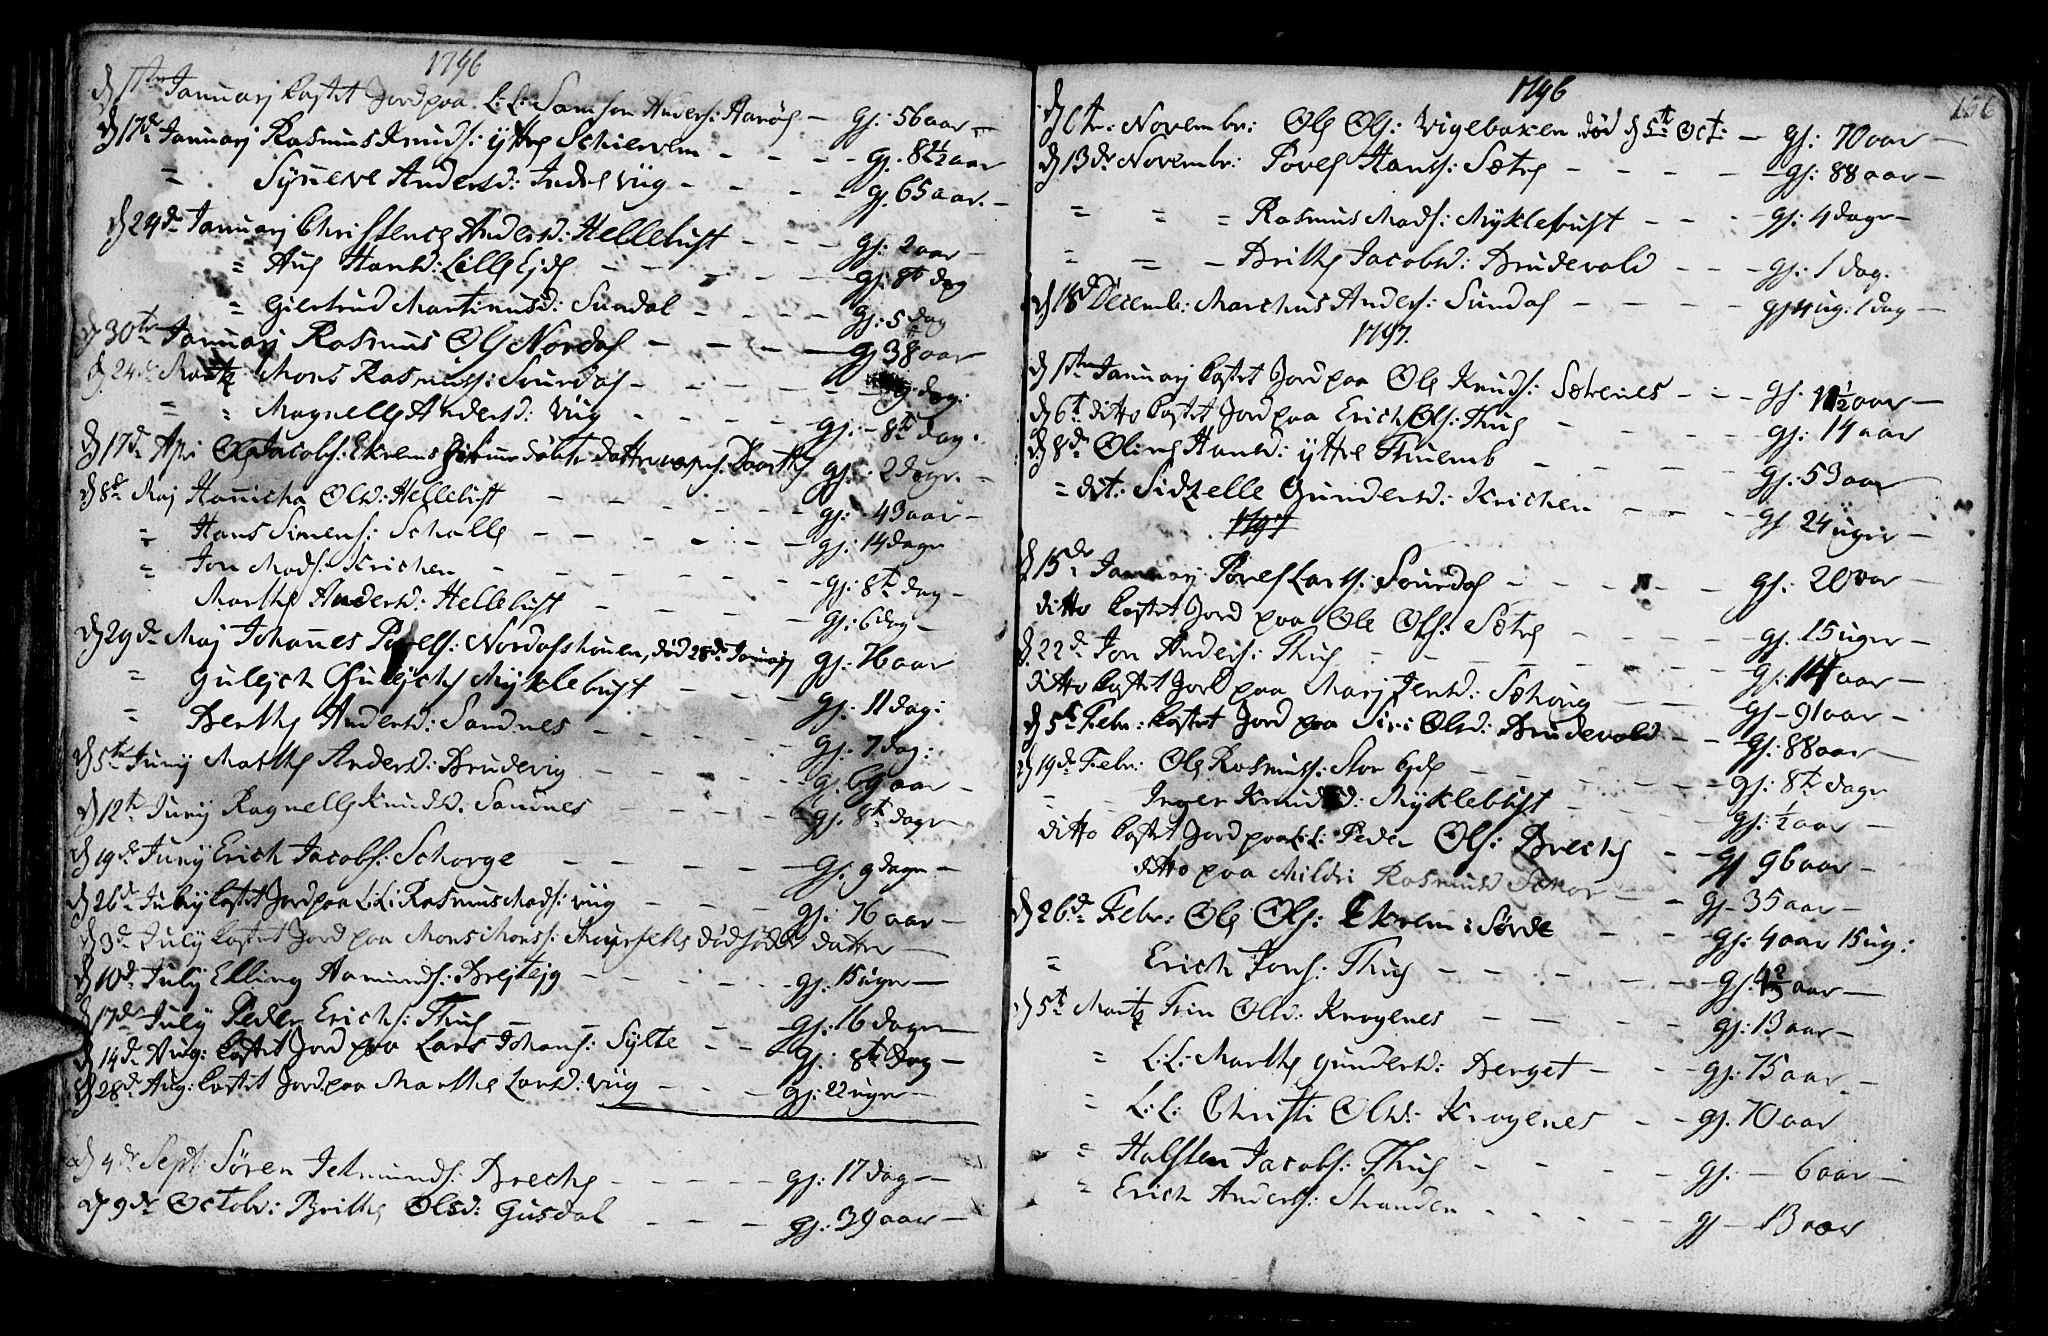 1796
d 1ste Januarj kastet Jord paa L: L: Samson Anders: Aaröe — gl: 56 aar —
d 17de Januarj Rasmus Knuds: ÿttre Schierven — gl: 8 1/2 aar
= Sÿneve Andersd: Indre Viig — gl. 65 aar. —
d 24de Januarj Christence Andersd: Hellebust — gl: 2 aar —
= Ane Hansd: Lille Ejde — gl: 8te dag
= Giertrud Martinusd: Sundal — gl: 5 dag
d 30te Januarj Rasmus Ols Nordal — gl 38 aar
d 24de Martz Mons Rasmuss: Sourdal — dag:
= = Magnelle Andersd: Viig — gl: 8te dag:
d 17de Apr Ole Jacobs: Ekrems datter Dorthe gl: 2 dage. —
d 8de Maj Hanicha Olsd: Hellebust — gl: 43 aar —
= Hans Simens: Scholle — gl: 14 dage
= Jon Mads: Krichen — gl: 8te dag —
Marthe Andersd: Hellebust — gl: 6 dag —
d 29de Maj Johanes Povels: Nordalshouen, död 28de Januarj gl: 76 aar
= Gulljch Gulljchs Mÿklebust — gl: 11 dag:
= Berthe Andersd: Sandnes — gl: 7 dag:
d 5te Junÿ Marthe Andersd: Brudevig — gl. 69 aar —
d 12te Junÿ Ragnelle Knudsd. Sannes — gl. 8te dage —
d 19de Junÿ Erich Jacobs: Schorge — gl. 9 dage —
d 26de Julÿ kastet Jord paa L: L: Rasmus Mads: Viig — gl. 76 aar —
d 3de Julÿ kastet Jord paa Mons Mons: dödföde datter —
d 10de Julÿ Elling Aamunds: Brejtejg — gl: 15 uger —
d 17de Julÿ Peder Erichs: Thue — gl: 16 dage —
d 14de Aug: kastet Jord paa Lars Johans: Sÿlte — gl: 8te dag —
d 28de Aug: kastet Jord paa Marthe Larsd: Viig — gl: 22 uger —
d 4de Sept: Sören Jetmunds: Breche — gl: 17 dag —
d 9de Octobr: Brithe Olsd: Gusdal — gl: 39 aar —
156
1796
d 6te: Novembr: Ole Ols: Vigebaken död d 5te Oct: — gl: 70 aar —
d 13de Novembr: Povel Hans: Sætre — gl: 88 aar —
= = = Rasmus Mads: Mÿklebust — gl: 4 dage —
= = — Brithe Jacobsd: Brudevold — gl: 1 dag.
d 18de Decemb: Marchus Anders: Sundal — gl 4 ug: 1 dag —
1797.
d 1ste Januarj kastet Jord paa Ole Knuds: Sætrenes — gl: 1 1/2 aar —
d 6te ditto kastet Jord paa Erich Ols: Thue — gl: 14 aar
d 8de Oline Hansd: ÿttre Thuemb — gl: 53 aar
= dit: Sidzelle Gundersd: Krichen — gl 24 uger —
1797
d 15de Januarj Povel Lars: Sourdal — gl: 20 aar —
ditto kastet Jord paa Ole Ols: Sætre — gl: 15 uger —
d 22de Jon Anders: Thue — gl: 14 aar —
ditto kastet Jord paa Marj Jensd: Sætroug — gl — 91 aar —
d 5te Febr: kastet Jord paa Siri Olsd: Brudevold — gl: 88 aar —
d 19de Febr: Ole Rasmus: Stor Ejde — gl: 8te dage
= Inger Knudsd: Mÿklebust — gl: 1/2 aar —
ditto kastet Jord paa L: L: Peder Ols: Breche — gl 96 aar —
ditto paa Mildri Rasmusd — gl 35 aar —
d 26de Febr: Ole Ols: Ekrem: Sörde — gl: 4 aar 15 ug:
= Erich Jons: Thue — gl: 4 2/3 aar —
d 5te Martz Trin Olsd: Krogenes — gl: 13 aar —
= L: L: Marthe Gundersd: Berget — gl: 75 aar —
= L: L: Christi Olsd: Krogenes — gl. 70 aar
= Halsten Jacobs: Thue — gl: — 6 aar —
= Erich Anders: Stranden — gl — 13 aar